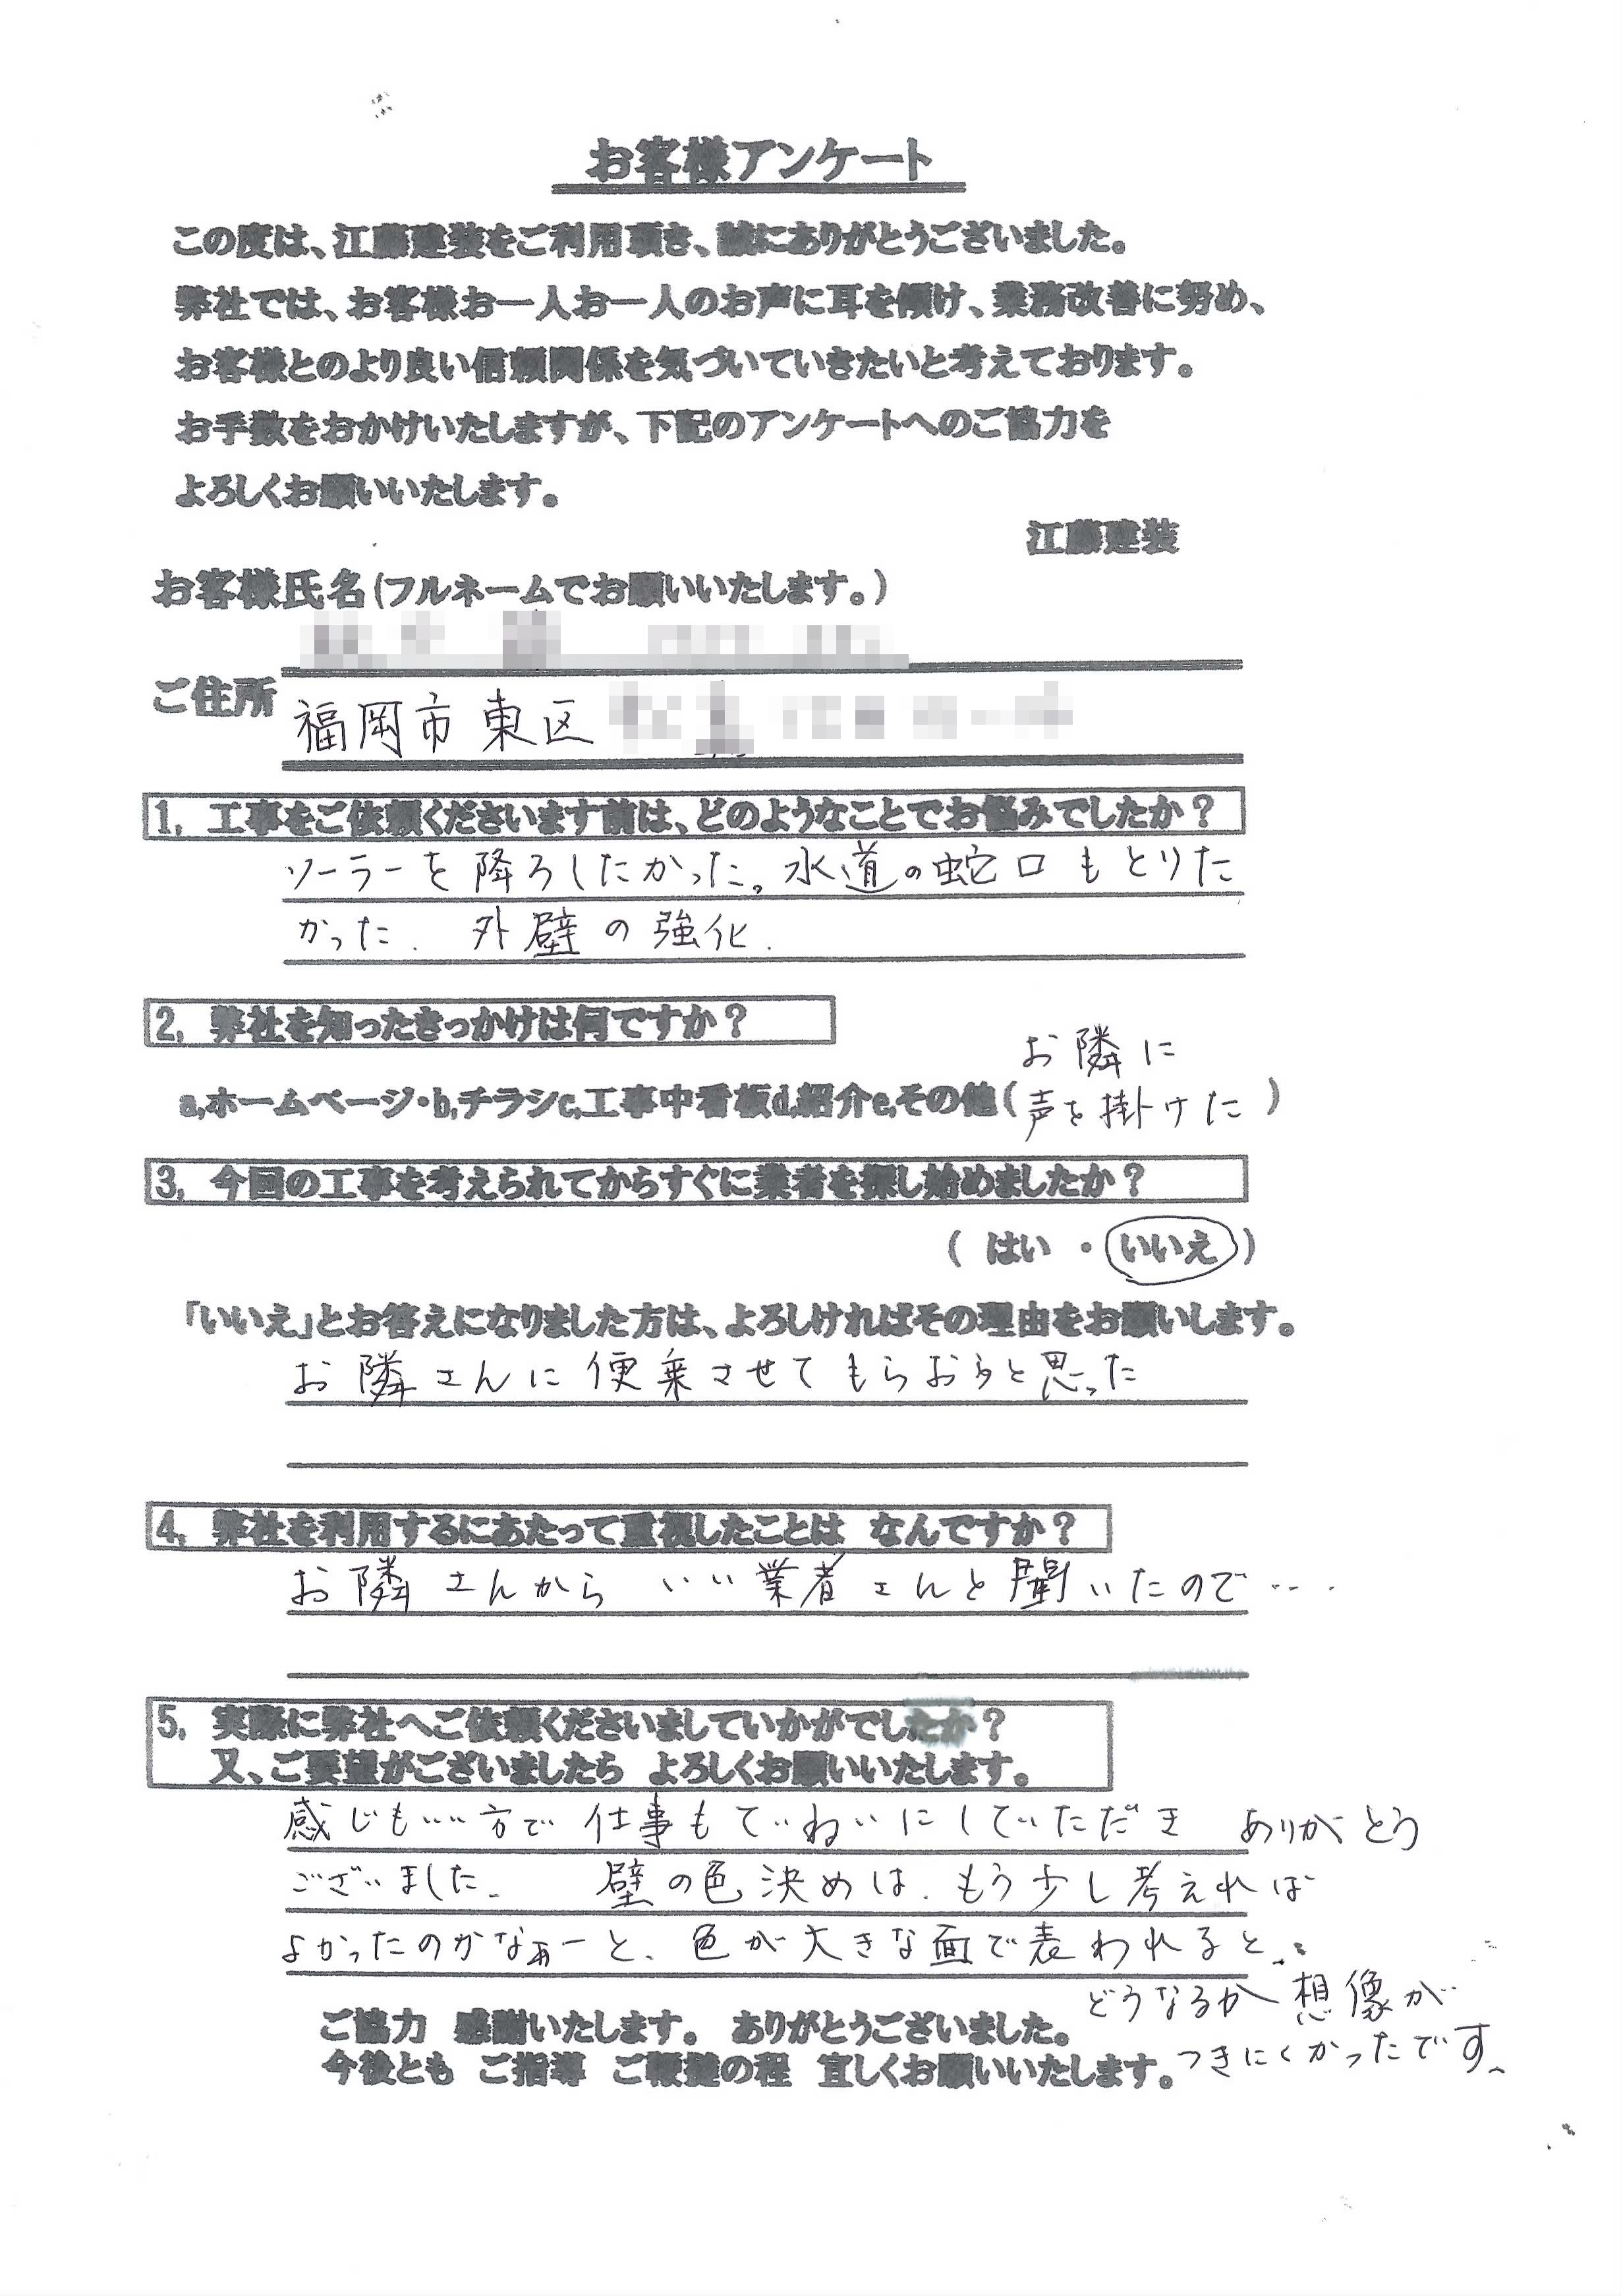 お客様アンケート
この度は、江藤建装をご利用頂き、誠にありがとうございました。
弊社では、お客様お一人お一人のお声に耳を傾け、業務改善に努め、
お客様とのより良い信頼関係を気づいていきたいと考えております。
お手数をおかけいたしますが、下記のアンケートへのご協力を
よろしくお願いいたします。
江藤建装
お客様氏名(フルネームでお願いいたします。)
ご住所 福岡市東区
1, 工事をご依頼くださいます前は、どのようなことでお悩みでしたか?
ソーラーを降ろしたかった。水道の蛇口もとりた
かった. 外壁の強化.
2, 弊社を知ったきっかけは何ですか?
a,ホームページ・b,チラシc,工事中看板d,紹介e,その他(お隣に
声を掛けた)
3, 今回の工事を考えられてからすぐに業者を探し始めましたか?
( はい ・ いいえ )
「いいえ」とお答えになりました方は、よろしければその理由をお願いします。
お隣さんに便乗させてもらおうと思った
4, 弊社を利用するにあたって重視したことは なんですか?
お隣さんから いい業者さんと聞いたので…
5, 実際に弊社へご依頼くださいましていかがでしたか?
又、ご要望がございましたら よろしくお願いいたします。
感じもいい方で仕事もていねいにしていただき ありがとう
ございました. 壁の色決めは、もう少し考えれば
よかったのかなぁーと、色が大きな面で表われると、
どうなるか想像が
つきにくかったです、
ご協力 感謝いたします。 ありがとうございました。
今後とも ご指導 ご鞭撻の程 宜しくお願いいたします。